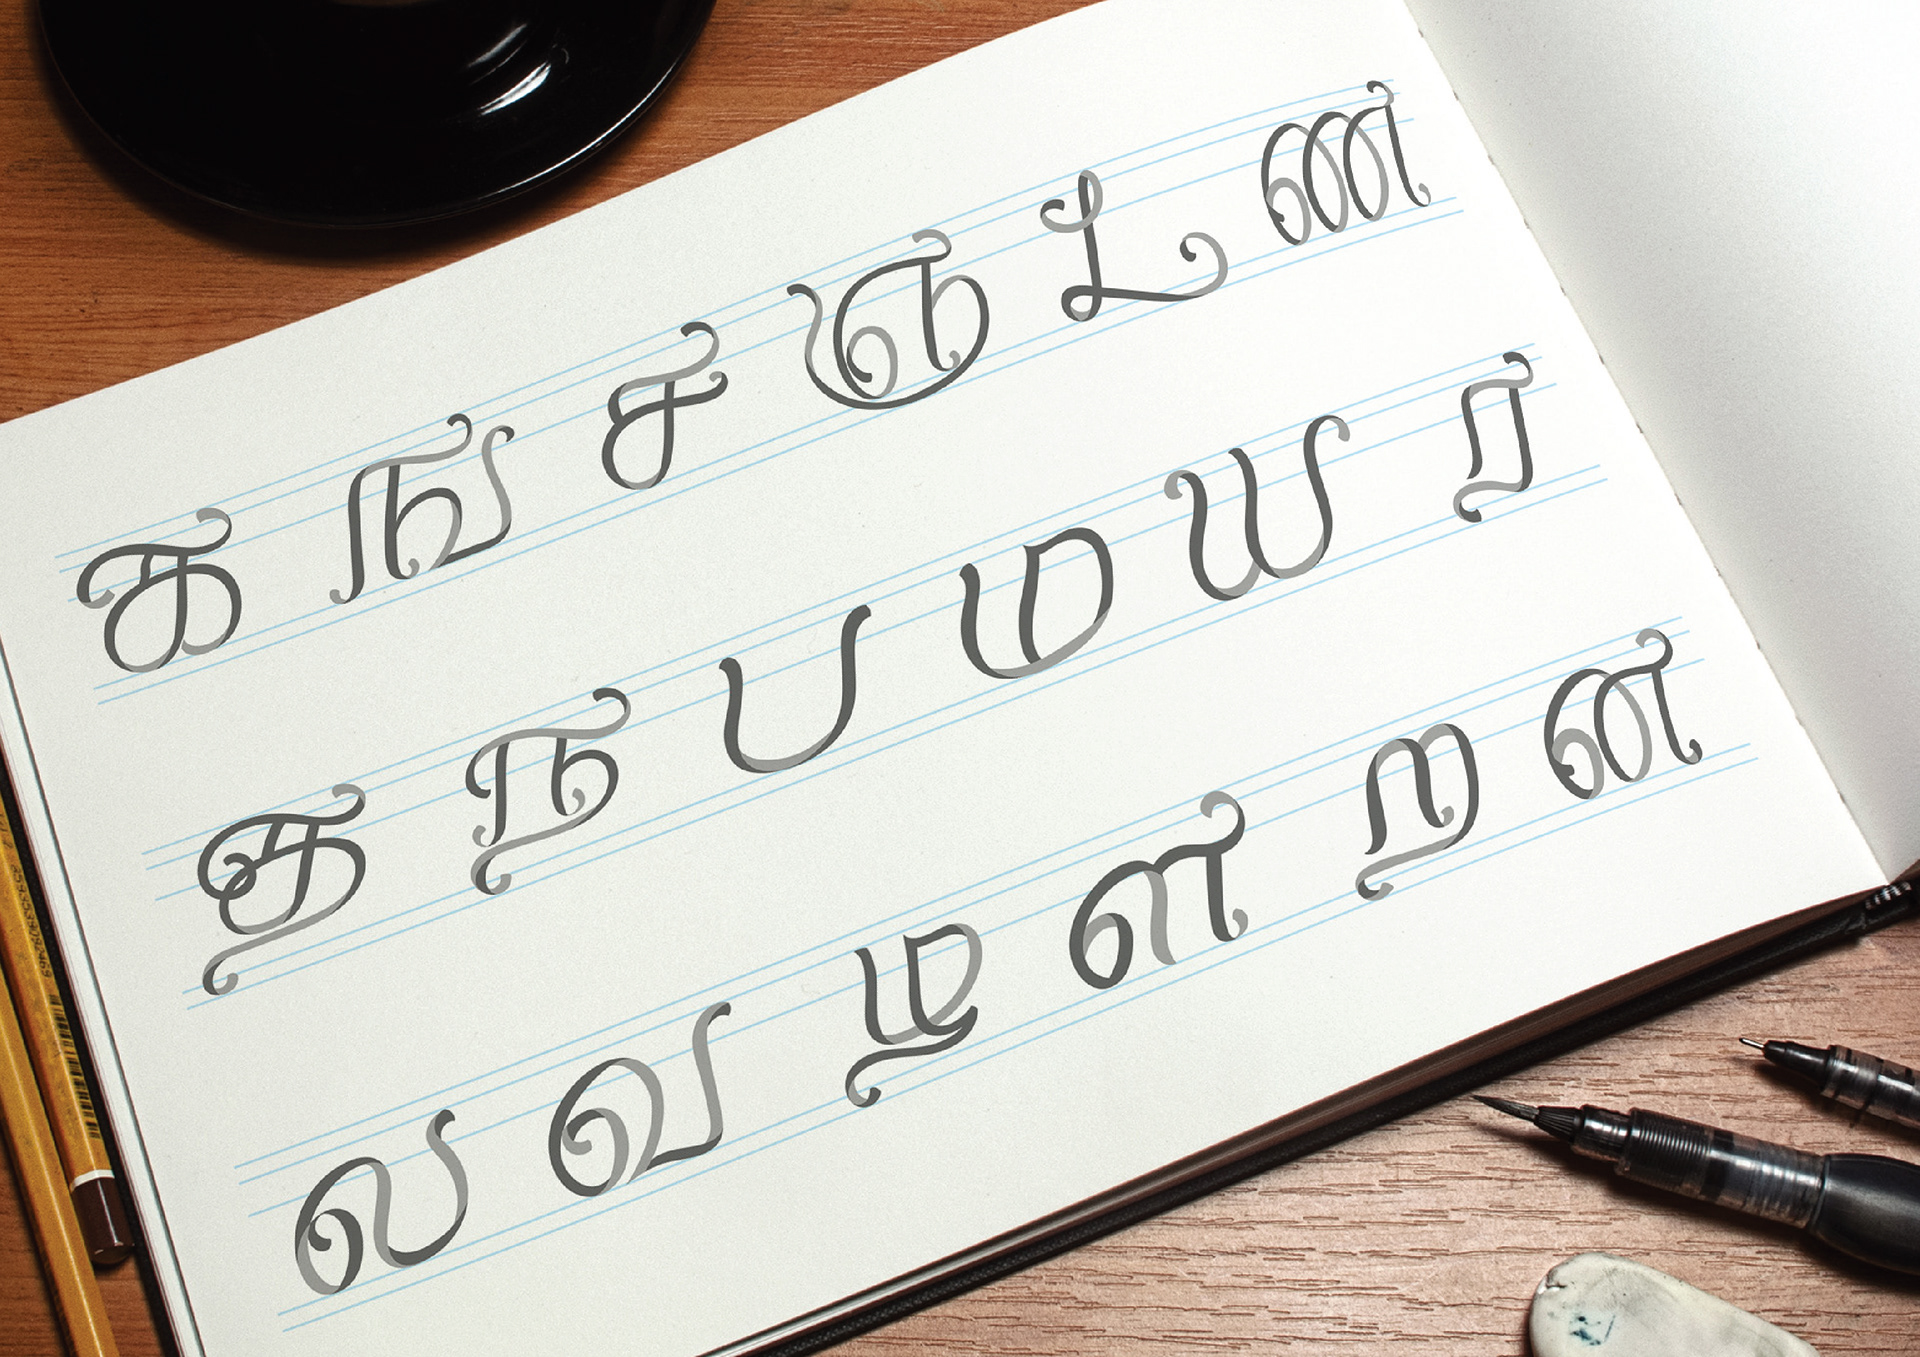 க ங ச ஞ ட ண
த ந ப ம ய ர
ல வ ழ ள ற ன